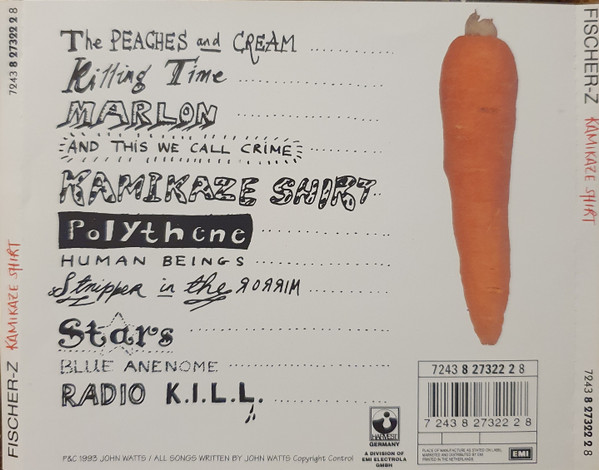 The PEACHES and CREAM ..........
Killing Time ..............
MARLON ..............
AND THIS WE CALL CRIME ........
KAMIKAZE SHIRT..
Polythene ..............
HUMAN BEINGS ..............
Stripper in the RORRIM ..........
Stars ..............
BLUE ANENOME ..............
RADIO K.I.L.L. ..............
P&C 1993 JOHN WATTS / ALL SONGS WRITTEN BY JOHN WATTS Copyright Control
HARVEST
GERMANY
A DIVISION OF
EMI ELECTROLA
GMBH
7243 8 27322 2 8
7 243 8 27322 2 8
PLACE OF MANUFACTURE AS STATED ON LABEL.
MARKETED AND DISTRIBUTED BY EMI
PRINTED IN THE NETHERLANDS
EMI
FISCHER-Z KAMIKAZE SHIRT 7243 8 27322 2 8
FISCHER-Z KAMIKAZE SHIRT 7243 8 27322 2 8